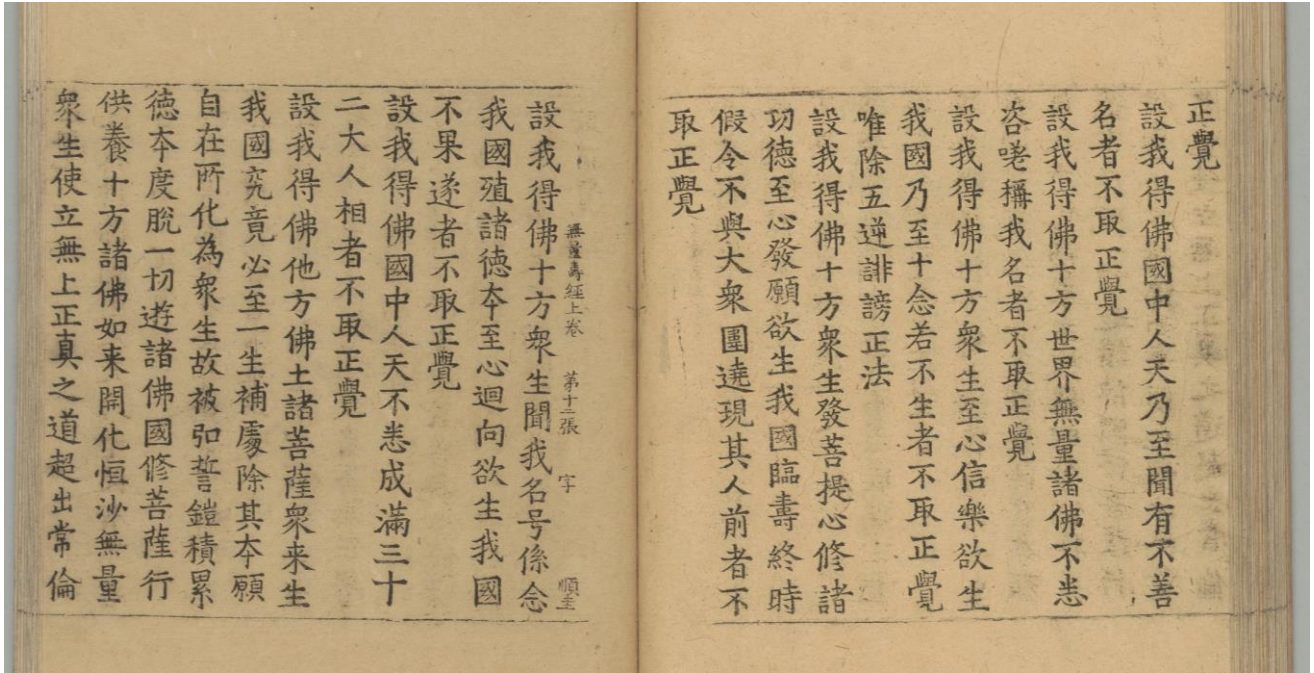 正覺
設我得佛國中人天乃至聞有不善
名者不取正覺
設我得佛十方世界無量諸佛不悉
咨嗟稱我名者不取正覺
設我得佛十方衆生至心信樂欲生
我國乃至十念若不生者不取正覺
唯除五逆誹謗正法
設我得佛十方衆生發菩提心修諸
功德至心發願欲生我國臨壽終時
假令不與大衆圍遶現其人前者不
取正覺
無量壽經上卷 第十二張 字
設我得佛十方衆生聞我名号係念
我國殖諸德夲至心迴向欲生我國
不果遂者不取正覺
設我得佛國中人天不悉成滿三十
二大人相者不取正覺
設我得佛他方佛土諸菩薩衆来生
我國究竟必至一生補處除其夲願
自在所化為衆生故被弘誓鎧積累
德夲度脫一切遊諸佛國修菩薩行
供養十方諸佛如来開化恒沙無量
衆生使立無上正真之道超出常倫